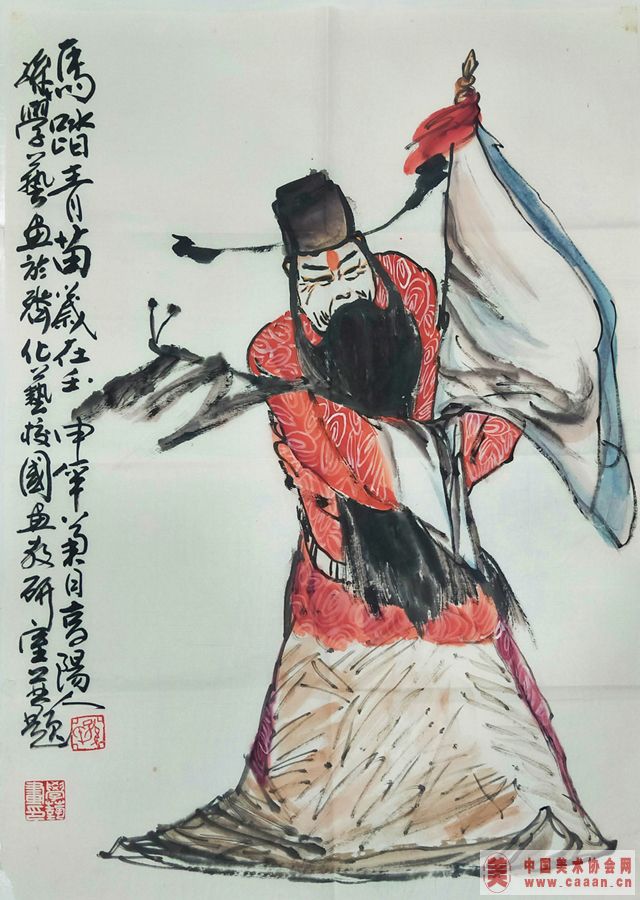 馬踏青苗歲在壬申年菊月高陽人
孫學藝画於齊化藝校國画教研室并題
美
中国美术协会网
www.caaan.cn